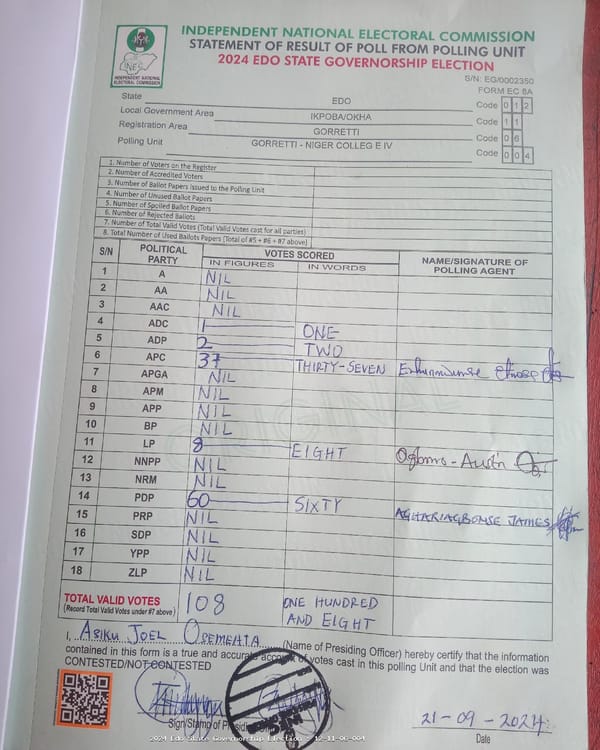 INDEPENDENT NATIONAL ELECTORAL COMMISSION
STATEMENT OF RESULT OF POLL FROM POLLING UNIT
2024 EDO STATE GOVERNORSHIP ELECTION
INDEPENDENT NATIONAL ELECTORAL COMMISSION
S/N: EG/0002350
FORM EC 8A
State EDO Code 0 1 2
Local Government Area IKPOBA/OKHA Code 1 1
Registration Area GORRETTI Code 0 6
Polling Unit GORRETTI - NIGER COLLEG E IV Code 0 0 4
1. Number of Voters on the Register
2. Number of Accredited Voters
3. Number of Ballot Papers Issued to the Polling Unit
4. Number of Unused Ballot Papers
5. Number of Spoiled Ballot Papers
6. Number of Rejected Ballots
7. Number of Total Valid Votes (Total Valid Votes cast for all parties)
8. Total Number of Used Ballots Papers (Total of #5 + #6 + #7 above)
S/N POLITICAL PARTY VOTES SCORED NAME/SIGNATURE OF POLLING AGENT
IN FIGURES IN WORDS
1 A NIL
2 AA NIL
3 AAC NIL
4 ADC 1 ONE
5 ADP 2 TWO
6 APC 37 THIRTY-SEVEN
7 APGA NIL
8 APM NIL
9 APP NIL
10 BP NIL
11 LP 8 EIGHT Ogbomo - Austin
12 NNPP NIL
13 NRM NIL
14 PDP 60 SIXTY
15 PRP NIL AGHARIAGBONSE JAMES
16 SDP NIL
17 YPP NIL
18 ZLP NIL
TOTAL VALID VOTES 108 ONE HUNDRED
(Record Total Valid Votes under #7 above) AND EIGHT
I, ASIKU JOEL OSEMEHTA (Name of Presiding Officer) hereby certify that the information
contained in this form is a true and accurate account of votes cast in this polling Unit and that the election was
CONTESTED/NOT CONTESTED
Sign/Stamp of
21-09-2024
Date
2024 Edo State Governorship Election - 12-11-06-004